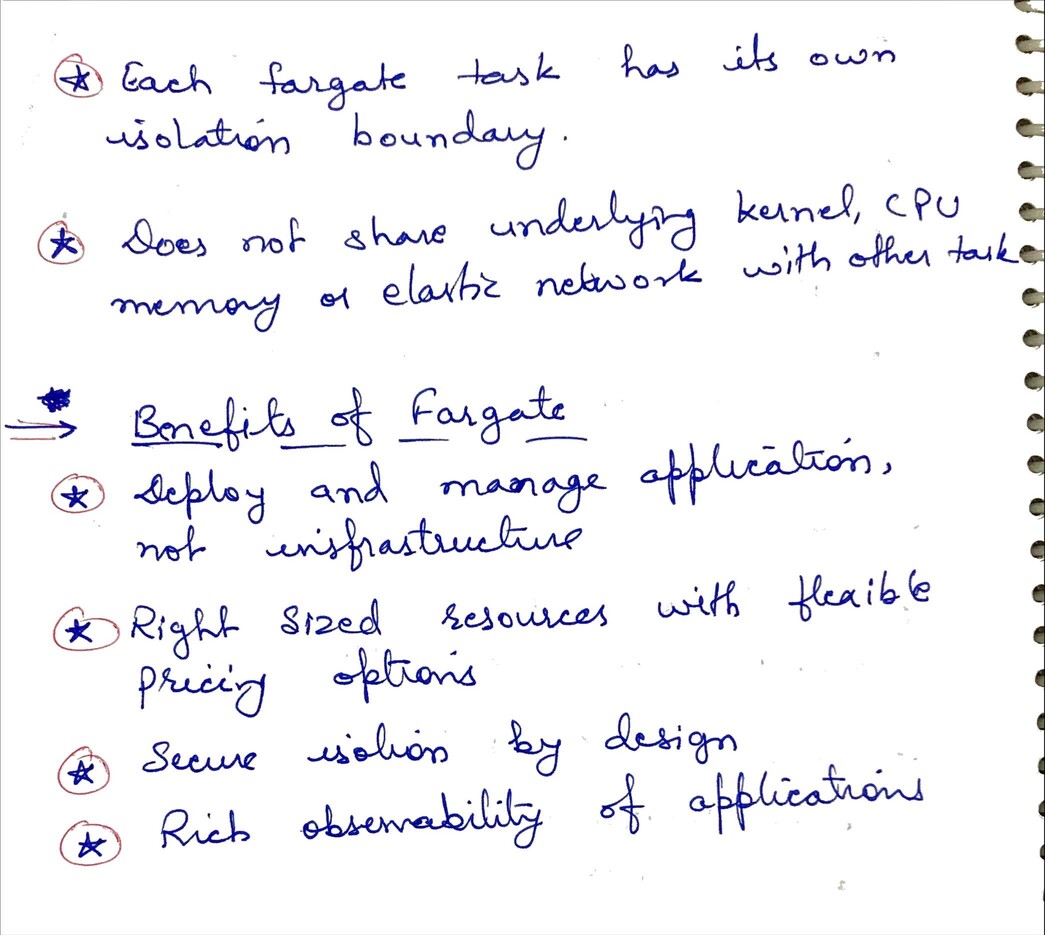 Each fargate task has its own
isolation boundary.
Does not share underlying kernel, CPU
memory or elastic network with other task
Benefits of Fargate
Deploy and manage application,
not insfrastructure
Right Sized resources with flexible
pricing options
Secure isolion by design
Rich observability of applications